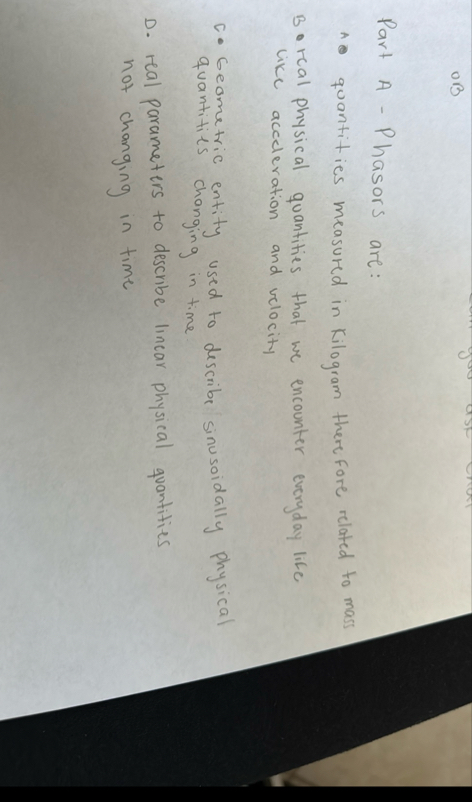 OB
Part A - Phasors are:
A. quantities measured in Kilogram therefore related to mass
B. real physical quantities that we encounter everyday life
like acceleration and velocity
C. Geometric entity used to describe sinusoidally physical
quantities changing in time
D. real parameters to describe linear physical quantities
not changing in time